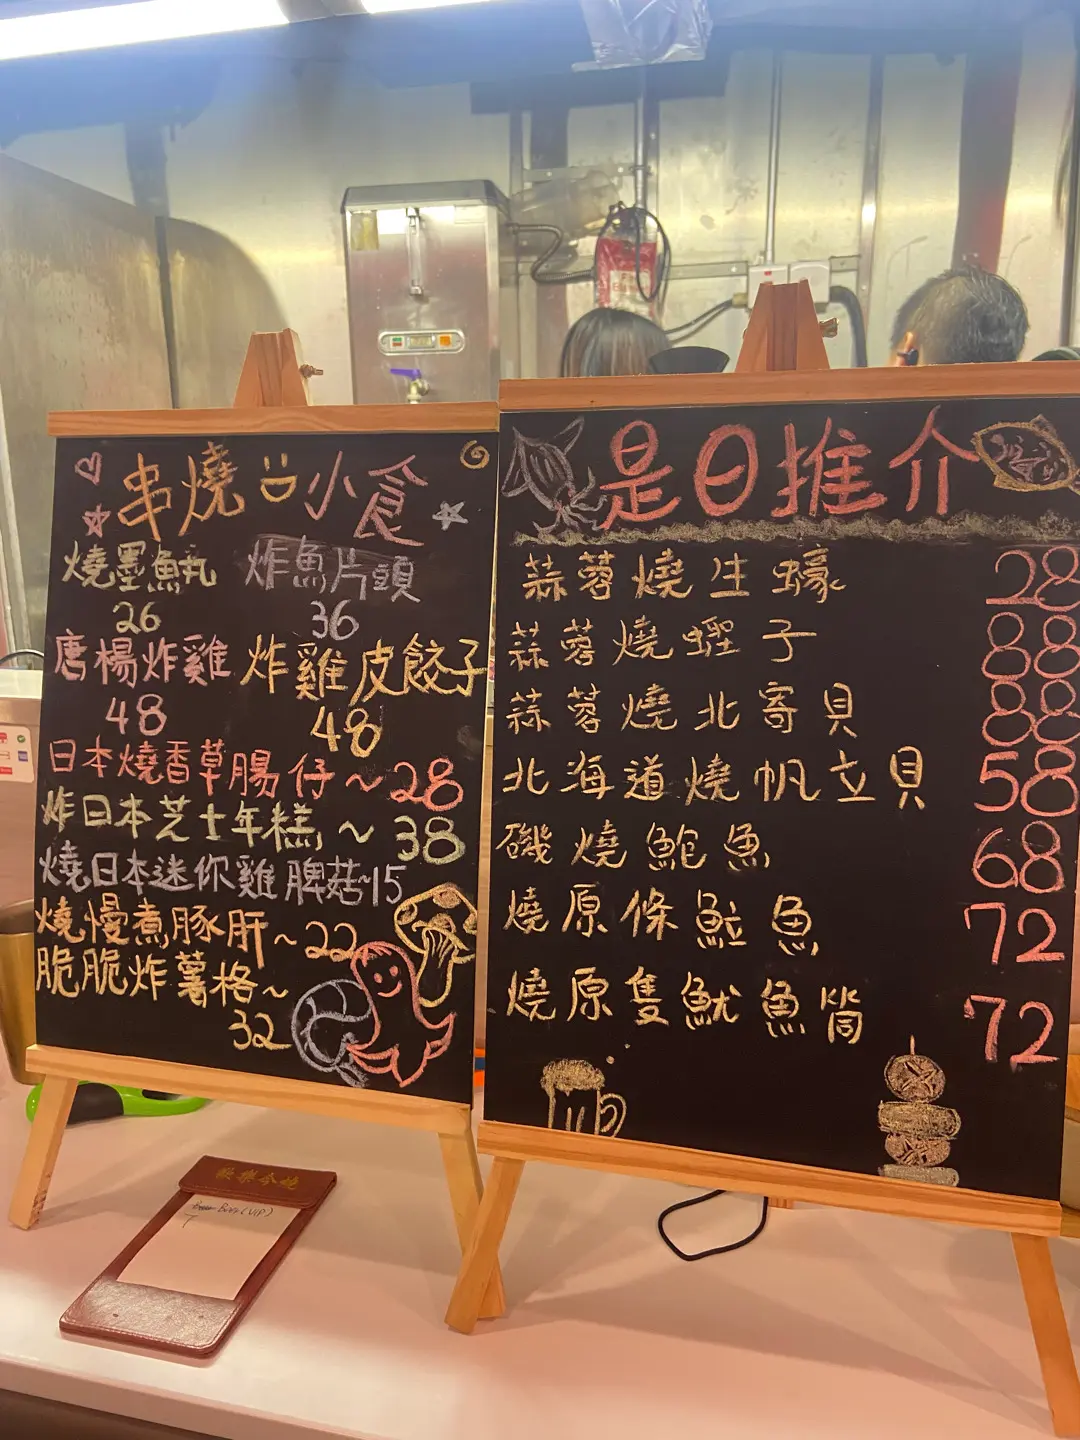 串燒小食
燒墨魚丸 炸魚片頭
26 36
唐楊炸雞 炸雞皮餃子
48 48
日本燒香草腸仔~28
炸日本芝士年糕~38
燒日本迷你雞脾菇~15
燒慢煮豚肝~22
脆脆炸薯格~
32
是日推介
蒜蓉燒生蠔 28
蒜蓉燒蟶子 88
蒜蓉燒北寄貝 88
北海道燒帆立貝 58
磯燒鮑魚 68
燒原條魷魚 72
燒原隻魷魚筒 72
歡樂今燒
Boss (VIP)